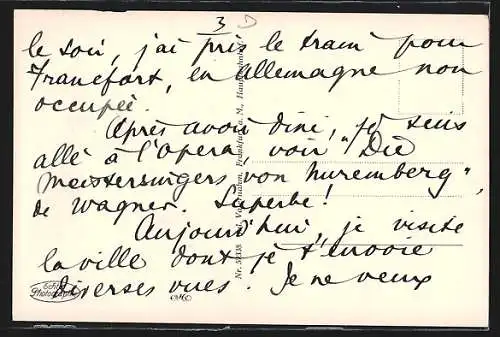 3
le soir, j'ai pris le tram pour
Francfort, en Allemagne non
occupée.
Après avoir diné, je suis
allé à l'opera voir "Die
Meistersingers von Nuremberg",
de Wagner. Superbe!
Aujourd'hui, je visite
la ville dont je t'envoie
diverses vues. Je ne veux
Echte
Photographie